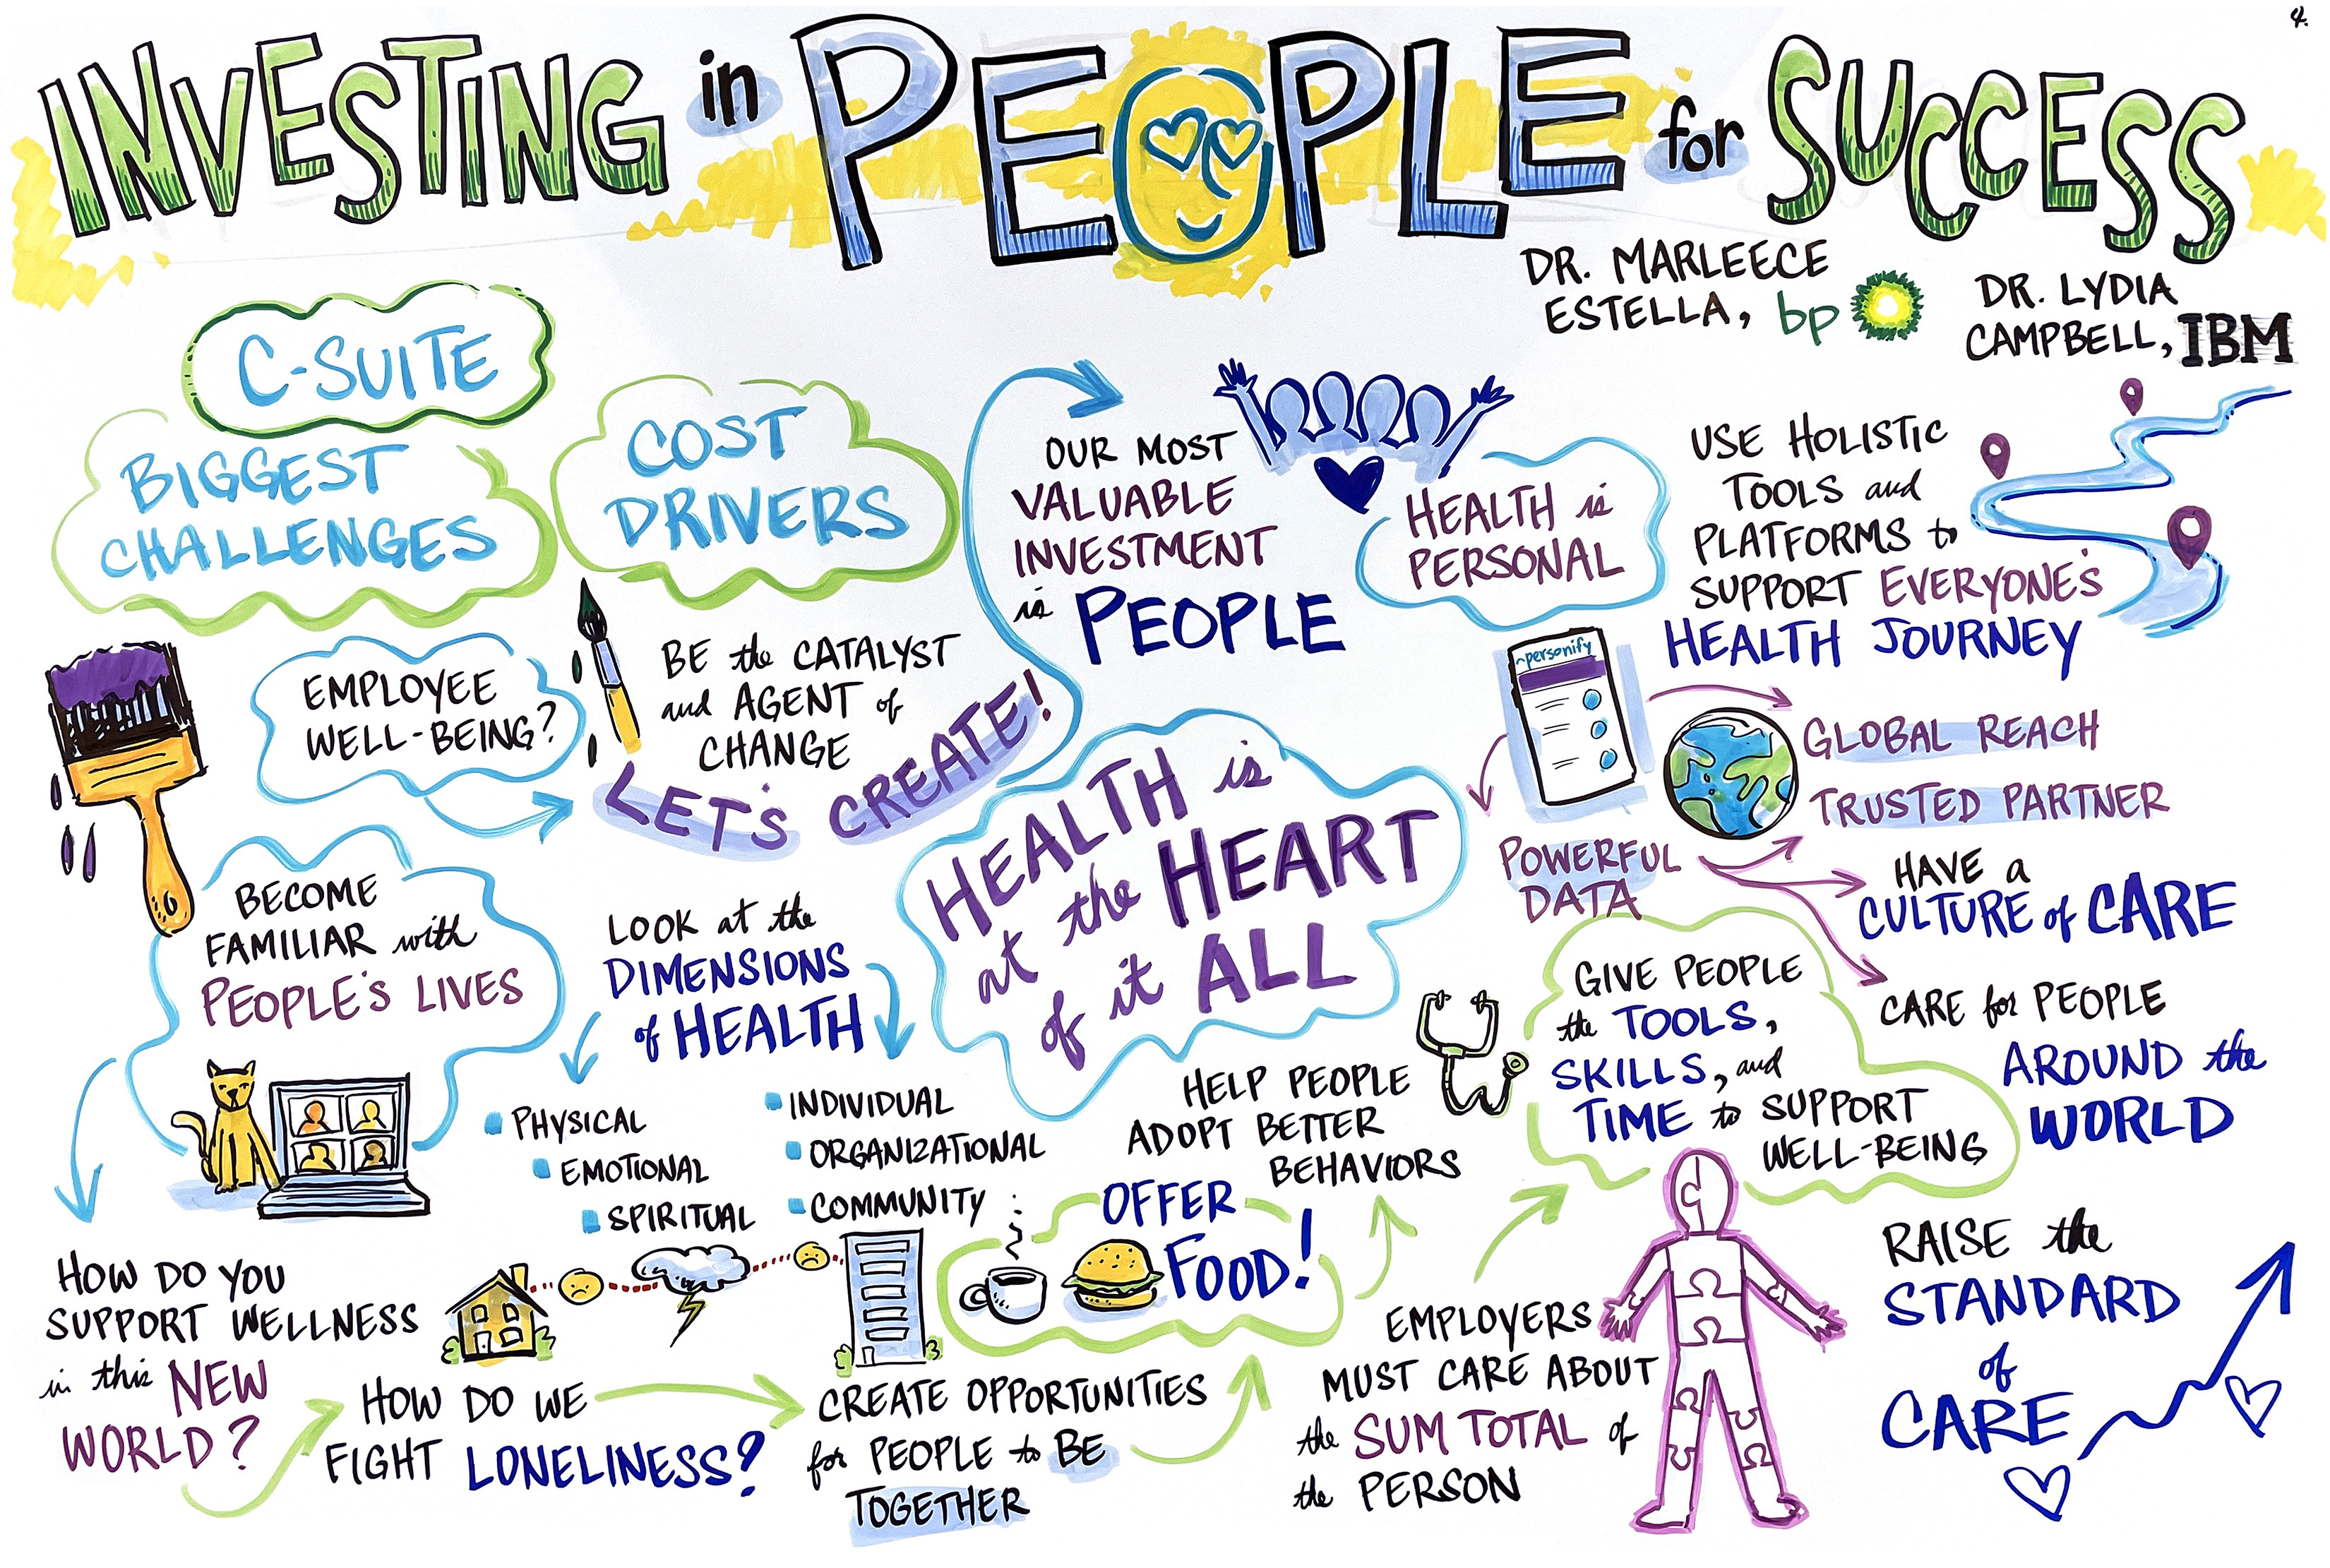 4.
INVESTING in PEOPLE for SUCCESS
DR. MARLEECE
ESTELLA, bp
DR. LYDIA
CAMPBELL, IBM
C-SUITE
BIGGEST
CHALLENGES
COST
DRIVERS
EMPLOYEE
WELL-BEING?
BE the CATALYST
and AGENT of
CHANGE
LET'S CREATE!
OUR MOST
VALUABLE
INVESTMENT
is PEOPLE
HEALTH is
PERSONAL
USE HOLISTIC
TOOLS and
PLATFORMS to
SUPPORT EVERYONE'S
HEALTH JOURNEY
personify
GLOBAL REACH
TRUSTED PARTNER
POWERFUL
DATA
HAVE a
CULTURE of CARE
CARE for PEOPLE
AROUND the
WORLD
HEALTH is
at the HEART
of it ALL
BECOME
FAMILIAR with
PEOPLE'S LIVES
LOOK at the
DIMENSIONS
of HEALTH
PHYSICAL
EMOTIONAL
SPIRITUAL
INDIVIDUAL
ORGANIZATIONAL
COMMUNITY
HOW DO YOU
SUPPORT WELLNESS
in this NEW
WORLD?
HOW DO WE
FIGHT LONELINESS?
CREATE OPPORTUNITIES
for PEOPLE to BE
TOGETHER
OFFER
FOOD!
HELP PEOPLE
ADOPT BETTER
BEHAVIORS
GIVE PEOPLE
the TOOLS,
SKILLS, and
TIME to SUPPORT
WELL-BEING
EMPLOYERS
MUST CARE ABOUT
the SUM TOTAL of
the PERSON
RAISE the
STANDARD
of
CARE